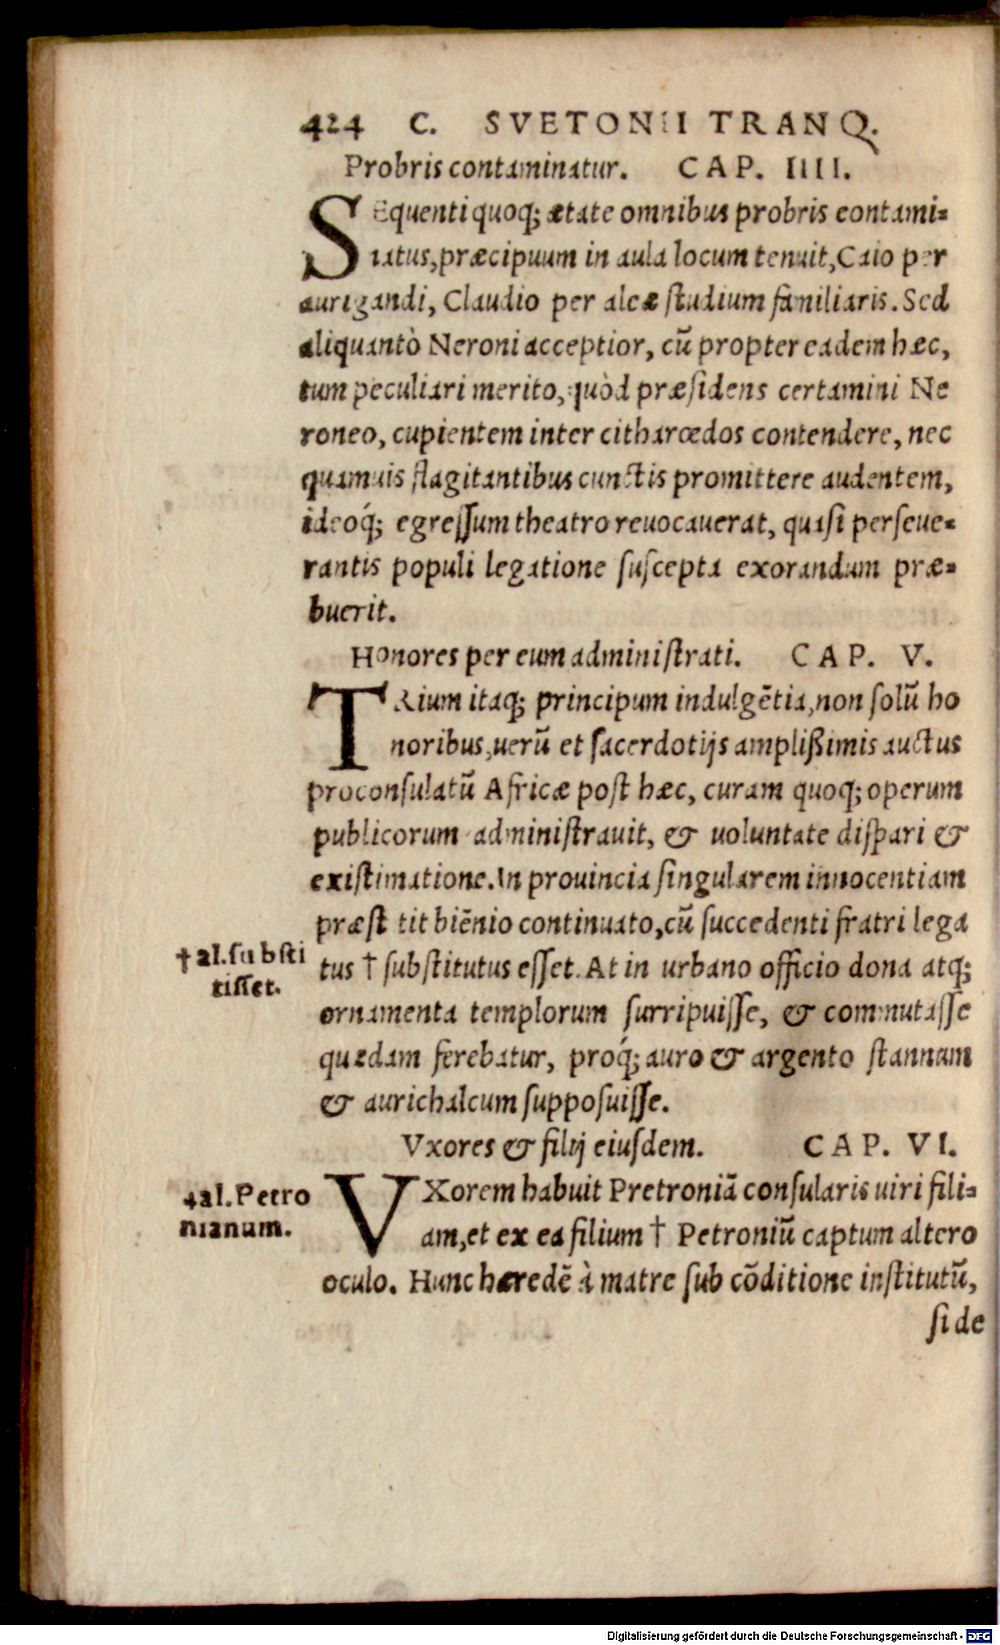 424 C. SVETONII TRANQ.
Probris contaminatur. CAP. IIII.
SEquenti quoq; ætate omnibus probris contami=
natus, præcipuum in aula locum tenuit, Caio per
aurigandi, Claudio per aleæ studium familiaris. Sed
aliquantò Neroni acceptior, cũ propter eadem hæc,
tum peculiari merito, quòd præsidens certamini Ne
roneo, cupientem inter citharœdos contendere, nec
quamuis flagitantibus cunctis promittere audentem,
ideoq́; egressum theatro reuocauerat, quasi perseue=
rantis populi legatione suscepta exorandum præ=
buerit.
Honores per eum administrati. CAP. V.
TRium itaq; principum indulgẽtia, non solũ ho
noribus, uerũ et sacerdotijs amplißimis auctus
proconsulatũ Africæ post hæc, curam quoq; operum
publicorum administrauit, & uoluntate dispari &
existimatione. In prouincia singularem innocentiam
præst tit biẽnio continuato, cũ succedenti fratri lega
† al. substi
tisset.
tus † substitutus esset. At in urbano officio dona atq;
ornamenta templorum surripuisse, & commutasse
quædam ferebatur, proq́; auro & argento stannum
& aurichalcum supposuisse.
Vxores & filij eiusdem. CAP. VI.
4al. Petro
nianum.
VXorem habuit Pretroniã consularis uiri fili=
am, et ex ea filium † Petroniũ captum altero
oculo. Hunc hæredẽ à matre sub cõditione institutũ,
si de
Digitalisierung gefördert durch die Deutsche Forschungsgemeinschaft - DFG